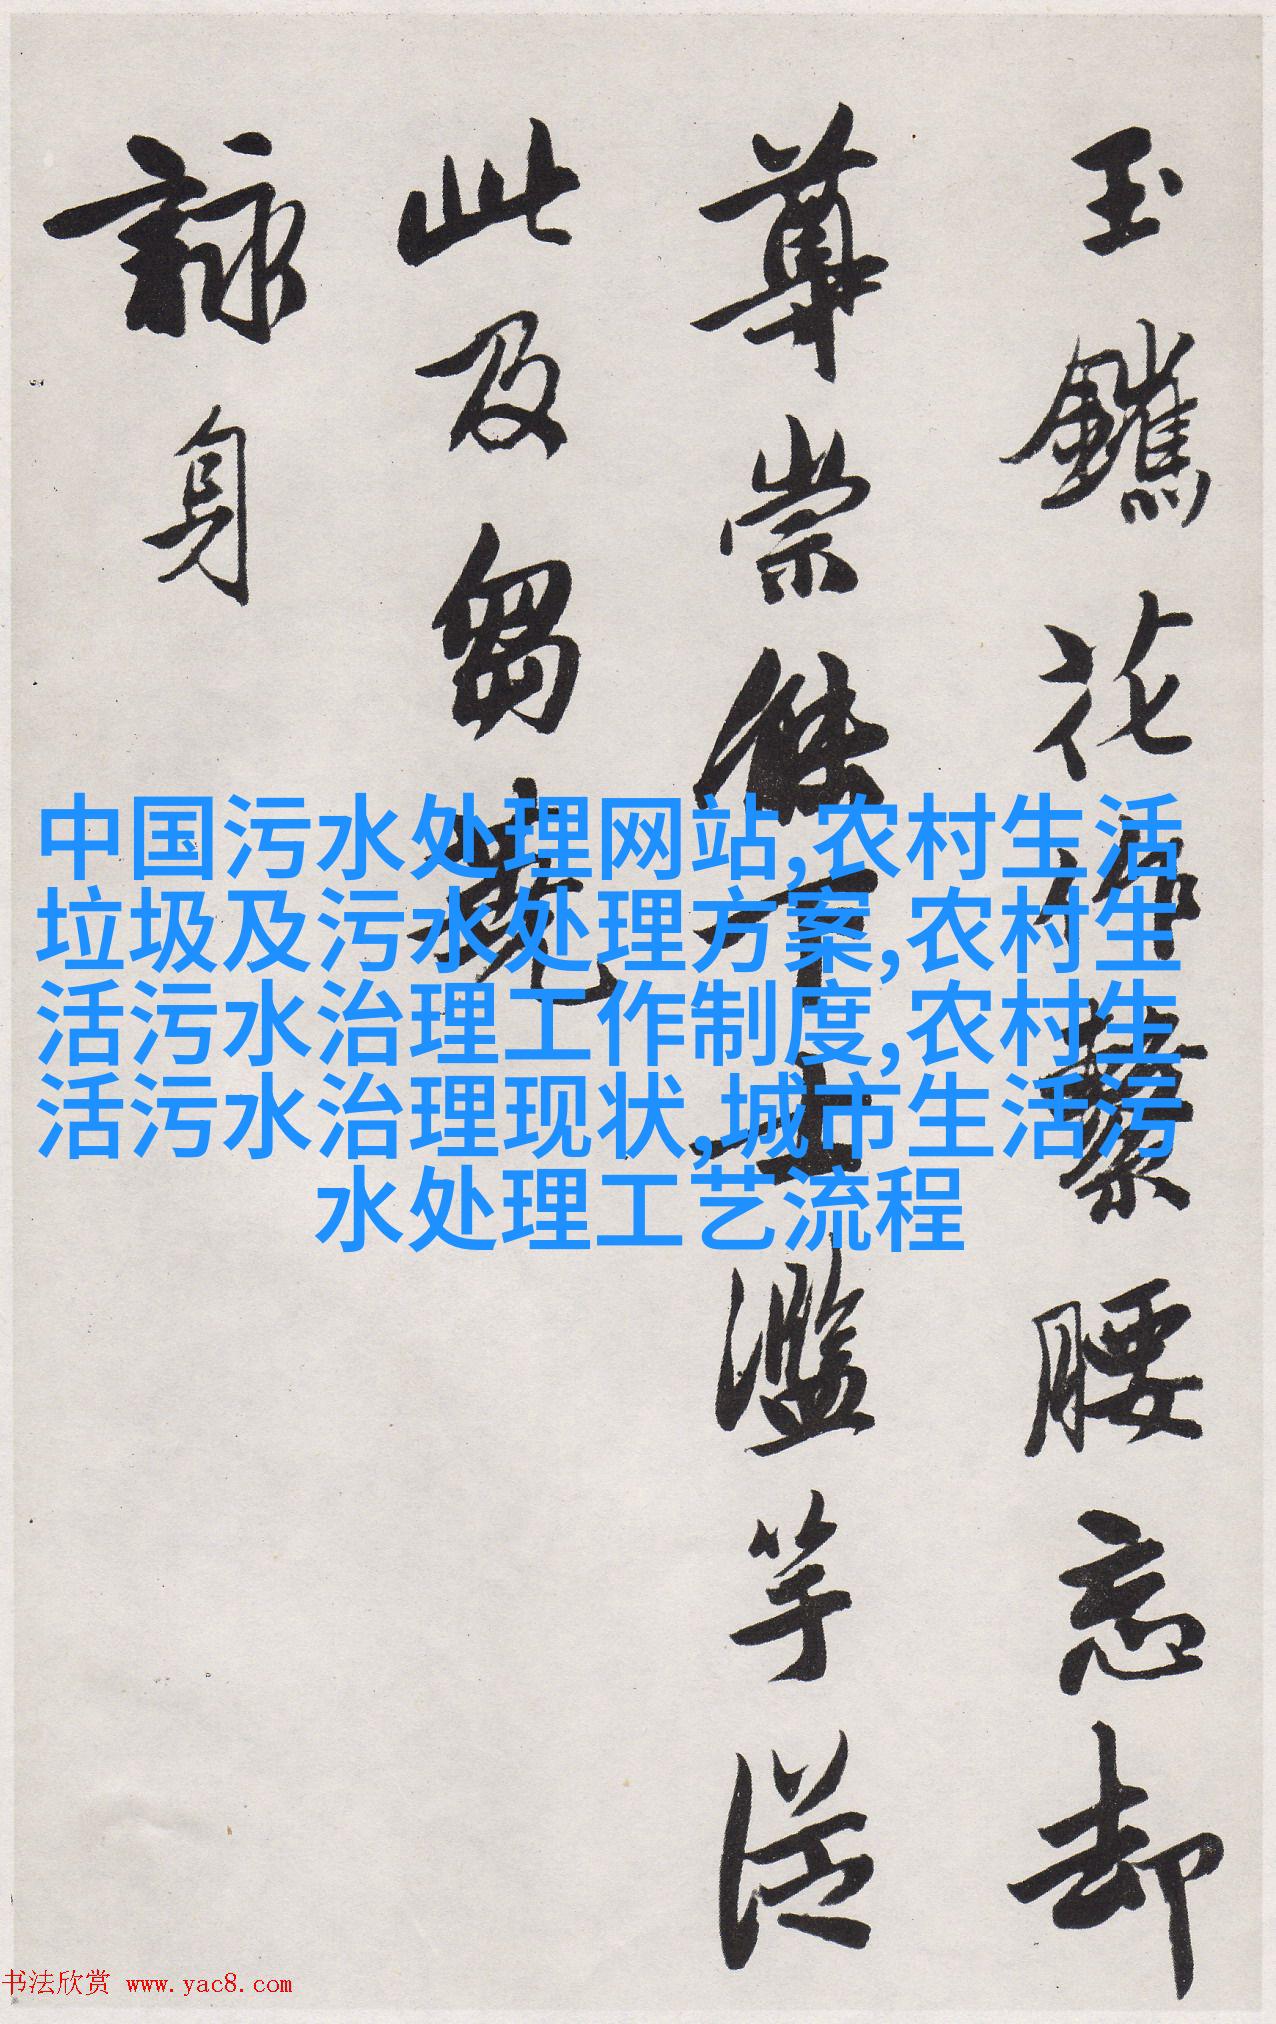 玉鑣花
腰忘却
尊崇傑
士濫竽從
此及芻蕘
詠身
中国污水处理网站,农村生活
垃圾及污水处理方案,农村生
活污水治理工作制度,农村生
活污水治理现状,城市生活污
水处理工艺流程
书法欣赏 www.yac8.com